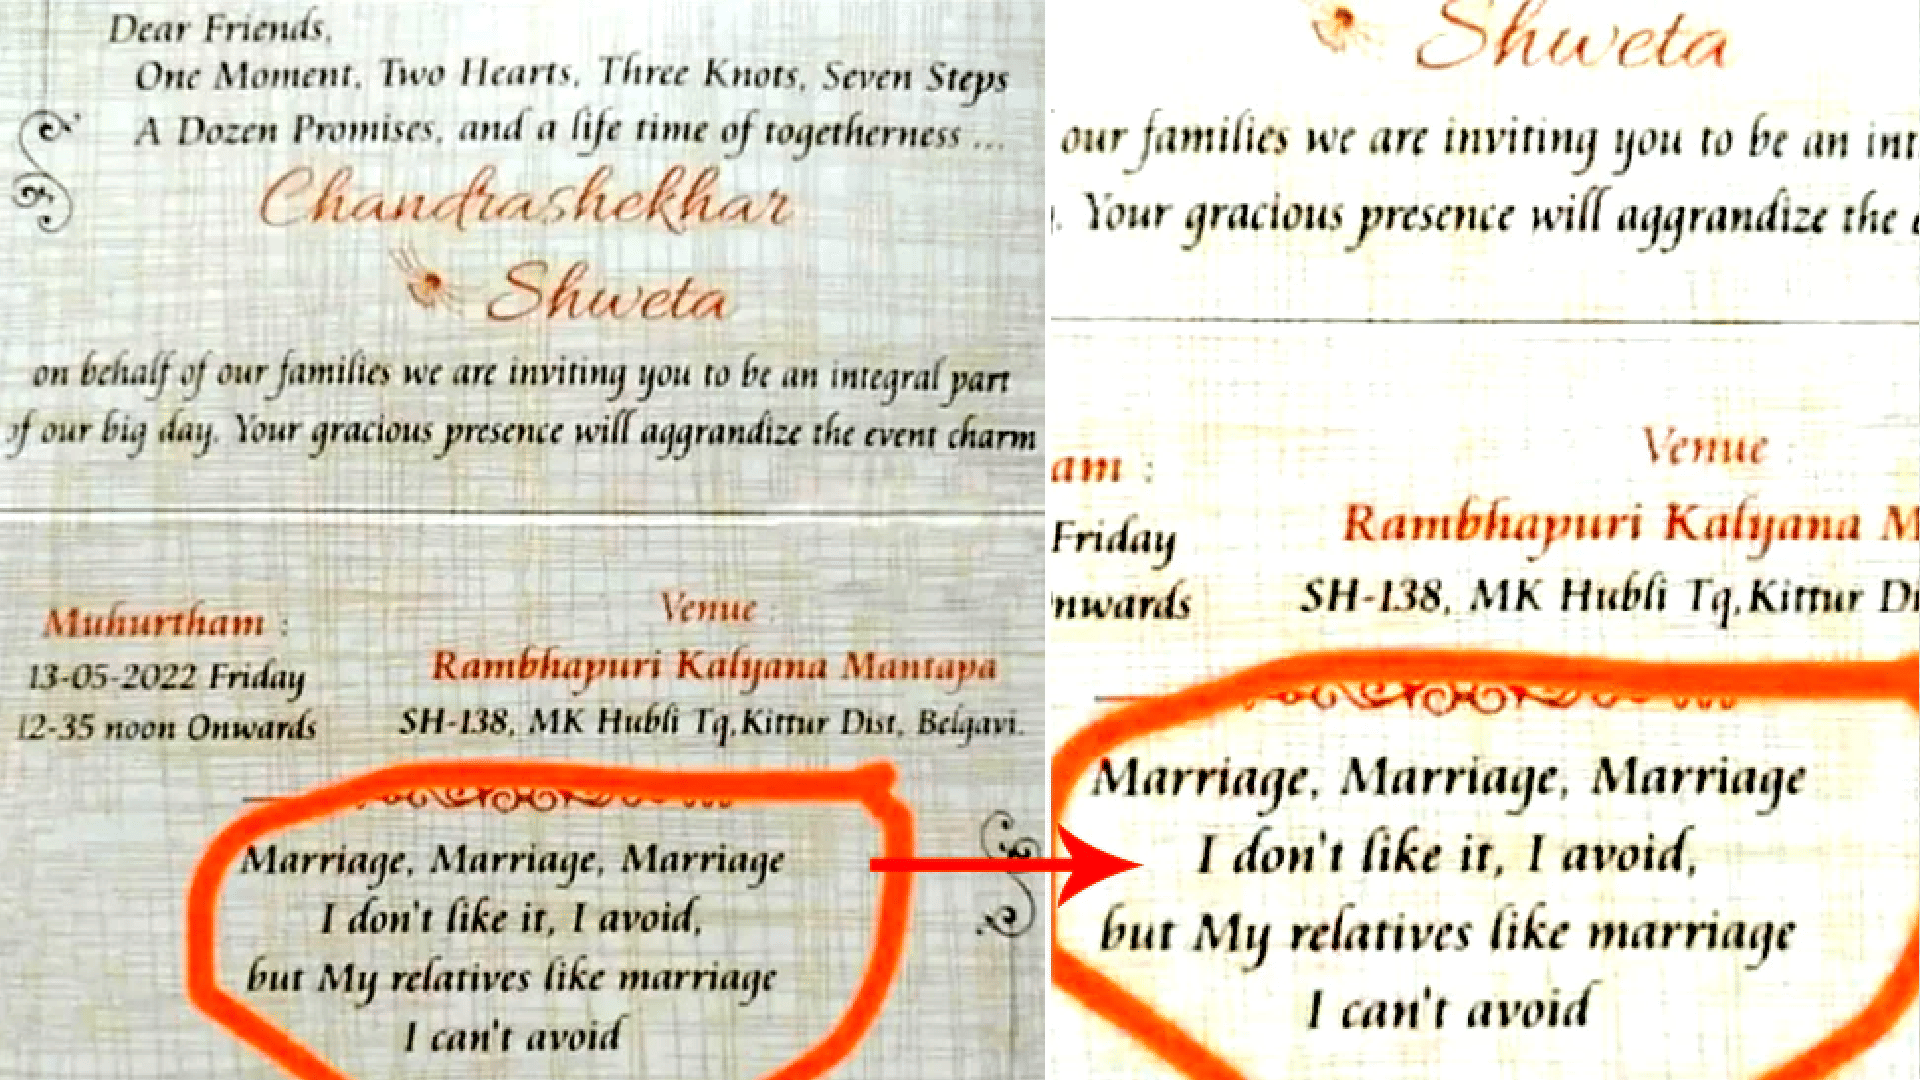 Dear Friends,
One Moment, Two Hearts, Three Knots, Seven Steps
A Dozen Promises, and a life time of togetherness ...
Chandrashekhar
Shweta
on behalf of our families we are inviting you to be an integral part
of our big day. Your gracious presence will aggrandize the event charm
Muhurtham :
13-05-2022 Friday
12-35 noon Onwards
Venue :
Rambhapuri Kalyana Mantapa
SH-138, MK Hubli Tq,Kittur Dist, Belgavi.
Marriage, Marriage, Marriage
I don't like it, I avoid,
but My relatives like marriage
I can't avoid
Shweta
our families we are inviting you to be an int
. Your gracious presence will aggrandize the e
am :
Friday
nwards
Venue :
Rambhapuri Kalyana M
SH-138, MK Hubli Tq,Kittur Di
Marriage, Marriage, Marriage
I don't like it, I avoid,
but My relatives like marriage
I can't avoid